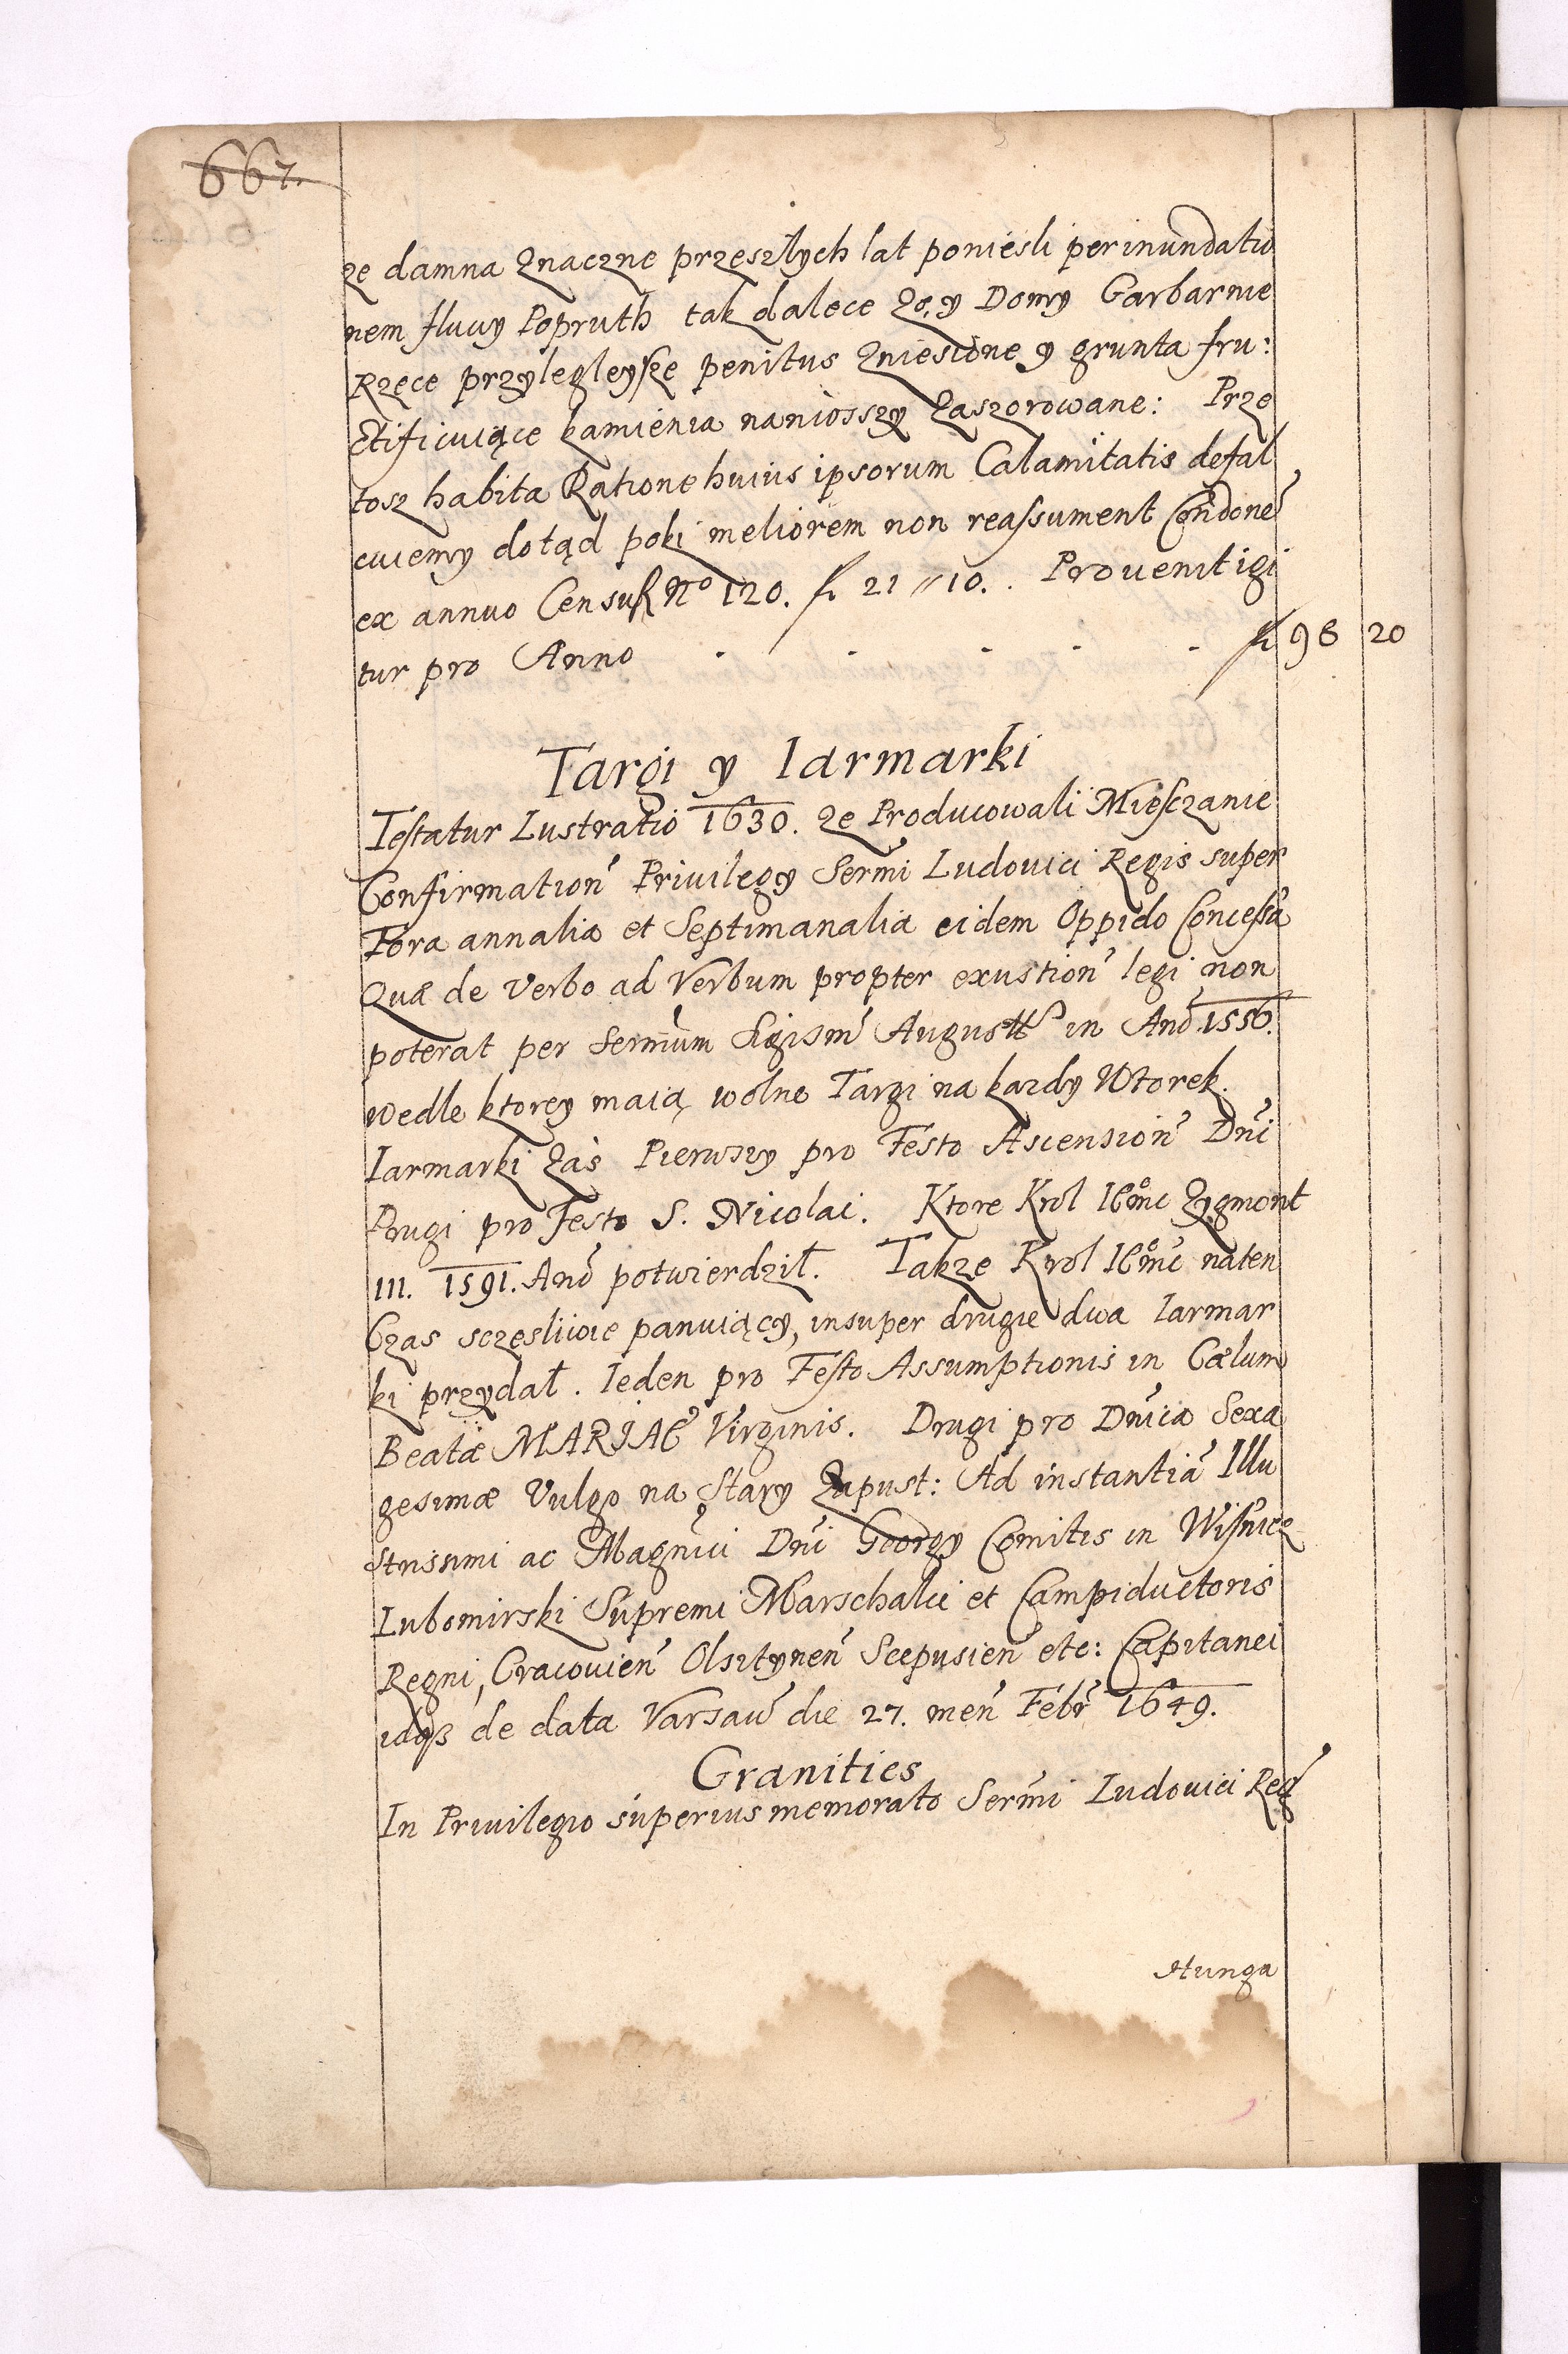 667.
ze damna znaczne przeszłych lat poniesli per inundatio
nem fluvy Popruth tak dalece ze, y Domy Garbarnie
Rzece przylegleysze penitus zniesione y grunta fru:
ctificuiące kamienia naniosszy zaszorowane: Prze
tosz habita Ratione huius ipsorum Calamitatis defal
cuiemy dotąd poki meliorem non reassument Condonē
ex annuo Censu No 120. fl 21 // 10. Provenit igi
tur pro Anno . . . . . fl 98 20
Targi y Iarmarki
Testatur Lustratio 1630. ze Producowali Miesczanie
Confirmation̄ Privilegy Serm̄i Ludovici Regis super
Fora annalia et Septimanalia eidem Oppido Concessa
Quæ de Verbo ad Verbum propter exustion̄ legi non
poterat per Serm̄um Sigism̄ August̄ in An̄o 1556.
wedle ktorey maią wolne Targi na kazdy Wtorek.
Iarmarki zas Pierwszy pro Festo Ascension̄ Dn̄i
Drugi pro Festo S. Nicolai. Ktore Krol IEom̄c Zygmont
III. 1591. An̄o potwierdził. Takze Krol IEom̄c naten
Czas sczesliwie panuiący, insuper drugie dwa Iarmar
ki przydał. Ieden pro Festo Assumptionis in Cælum
Beatæ MARIAE Virginis. Drugi pro Dn̄ica Sexa
gesimæ Vulgo na Stary Zapust: Ad instantiā Illu
strissimi ac Magn̄ici Dn̄i Georgy Comitis in Wisnicz
Lubomirski Supremi Marschalci et Campiductoris
Regni, Cracovien̄ Olsztynen̄ Scepusien̄ etc: Capitanei
idqȝ de data Varsav̄ die 27. men̄ Febr̄ 1649.
Granities
In Privilegio superius memorato Serm̄i Ludovici Reḡ
Hunga